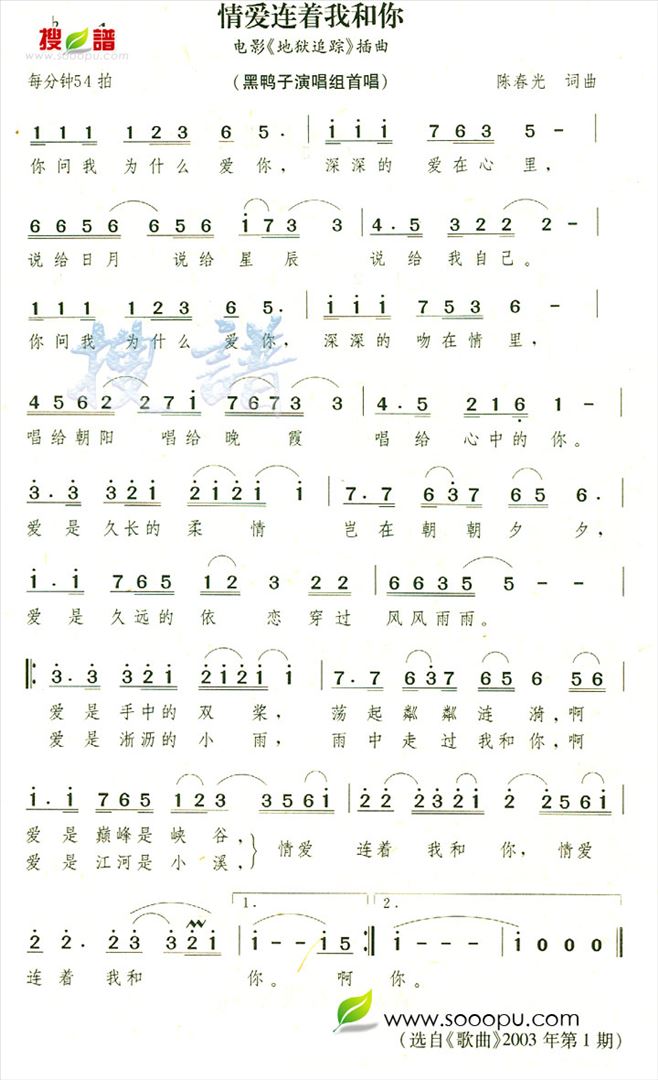 情爱连着我和你
搜谱
电影《地狱追踪》插曲
每分钟54 拍
（黑鸭子演唱组首唱）
陈春光 词曲
1 1 1 1 2 3 6 5 · | i i i 7 6 3 5 - |
你问我 为什么 爱你， 深深的 爱在心里，
6 6 5 6 6 5 6 i 7 3 3 | 4 · 5 3 2 2 2 - |
说给日月 说给星辰 说给我自己。
1 1 1 1 2 3 6 5 · | i i i 7 5 3 6 - |
你问我 为什么 爱你， 深深的 吻在情里，
搜谱
4 5 6 2 2 7 i 7 6 7 3 3 | 4 · 5 2 1 6 1 - |
唱给朝阳 唱给晚霞 唱给 心中的你。
3 · 3 3 2 i 2 i 2 i i | 7 · 7 6 3 7 6 5 6 · |
爱是久长的柔情 岂在朝朝夕夕，
i · i 7 6 5 1 2 3 2 2 | 6 6 3 5 5 - - |
爱是久远的依恋穿过 风风雨雨。
3 · 3 3 2 i 2 i 2 i i | 7 · 7 6 3 7 6 5 6 5 6 |
爱是手中的双桨， 荡起粼粼涟漪，啊
爱是淅沥的小雨， 雨中走过我和你，啊
i · i 7 6 5 1 2 3 3 5 6 i | 2 2 2 3 2 i 2 2 5 6 i |
爱是巅峰是峡谷，
爱是江河是小溪， 情爱 连着 我和你，情爱
1. 2.
2 2 · 2 3 3 2 i | i - - i 5 :| i - - - | i 0 0 0 ‖
连着 我和 你。 啊 你。
www.sooopu.com
（选自《歌曲》2003 年第 1 期）